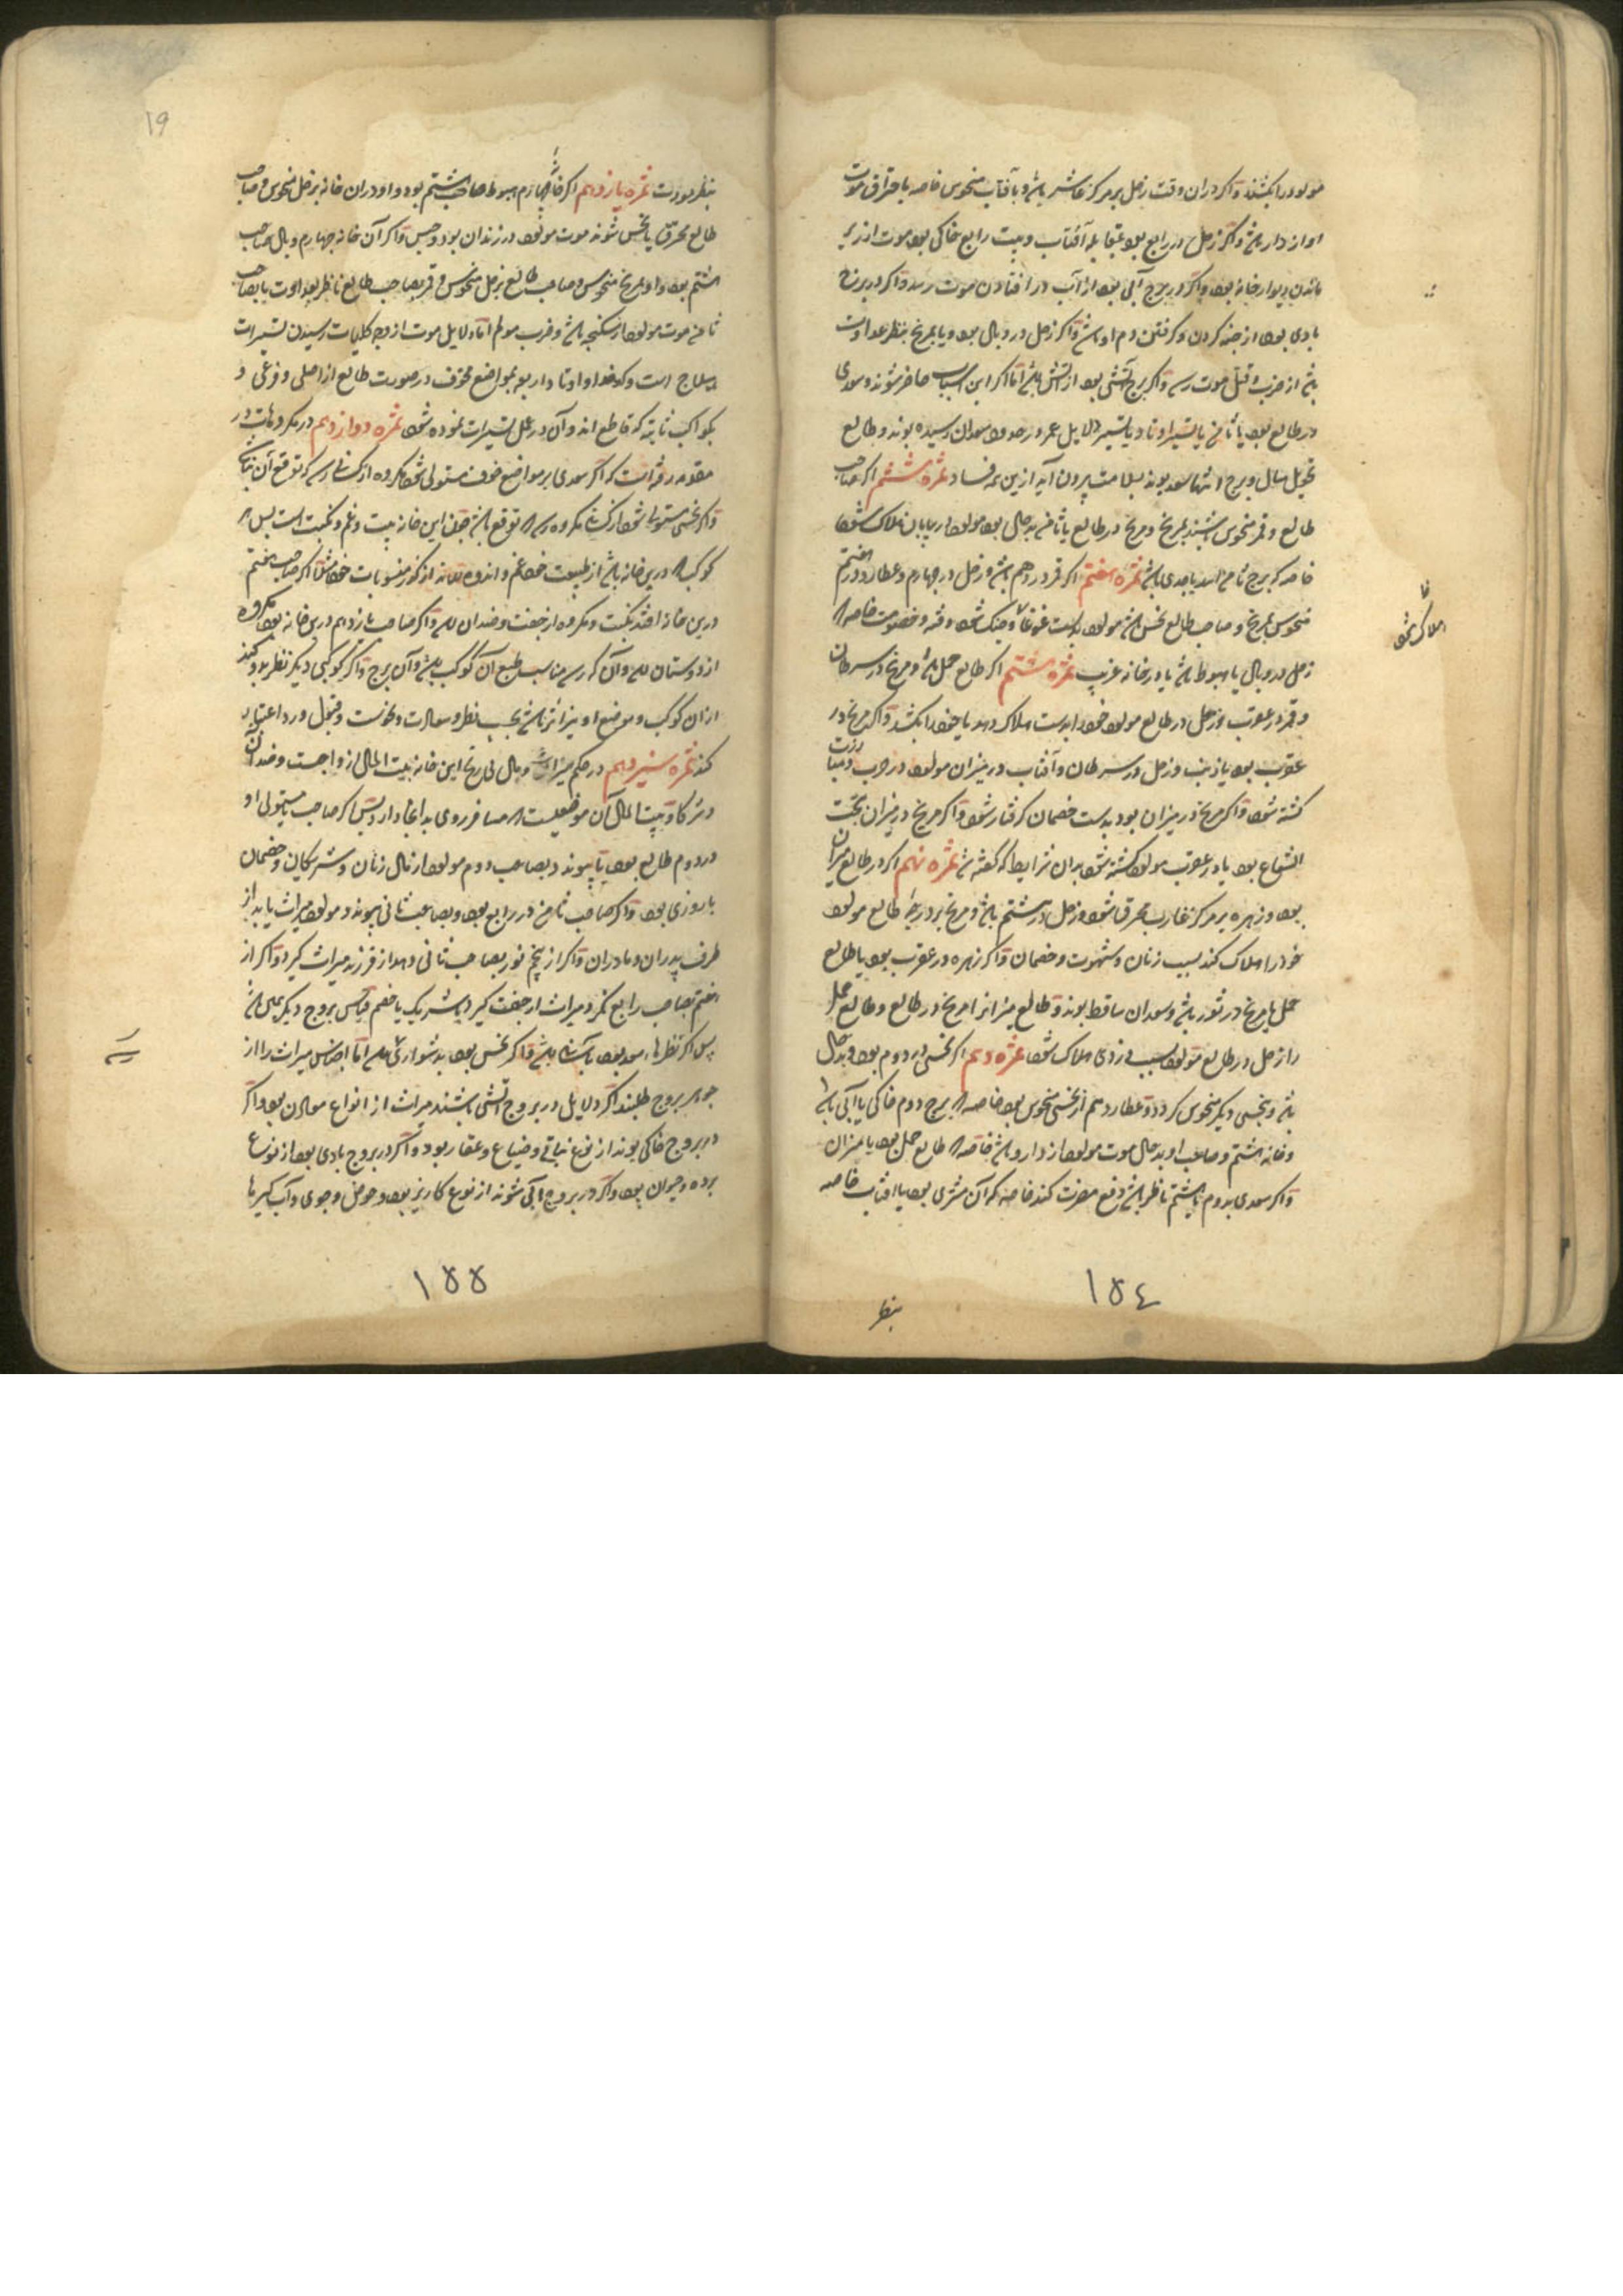 مولود را بکشند و اگر در ان وقت زحل بر مرکز عاشر باشد و بآفتاب منحوس خاصه باحتراق موت
او از دار باشد و اگر زحل در رابع بود بمقابله آفتاب و بیت رابع خاکی بود موت از زیر
ماندن دیوار خانه بود و اگر در برج آبی بود از آب در افتادن موت رسد و اگر در برج
بادی بود از خبه کردن و گرفتن دم او باشد و اگر زحل در وبال بود و یا بمریخ بنظر عداوت
باشد از ضرب و قتل موت رسد و اگر برج آتشی بود از آتش باشد اما اگر این اسباب حاضر شوند و سعدی
در طالع بود یا ثامن یا بتسیر اوتاد یا بتسیر دلایل عمر در حدود سعدان رسیده بوند و طالع
تحویل سال و برج انتها سعد بوند بسلامت بیرون آید از ین همه فساد ثمره ششم اگر صاحب
طالع و قمر منحوس باشند بمریخ و مریخ در طالع یا ثامن بدحال بود مولود در بیابان هلاک شود
خاصه که برج ثامن اسد یا جدی باشد ثمره هفتم اگر قمر در دهم باشد و زحل در چهارم و عطارد در هفتم
منحوس بمریخ و صاحب طالع نحس باشد مولود بدست غوغا و جنگ شود و فتنه و خصومت خاصه که
زحل در وبال یا هبوط باشد یا در خانه غریب ثمره هشتم اگر طالع حمل باشد و مریخ در سرطان
و قمر در عقرب و زحل در طالع مولود خود را بدست هلاک دهد یا خود را بکشد و اگر مریخ در
عقرب بود یا ذنب و زحل در سرطان و آفتاب در میزان مولود در حرب و مبارزت
کشته شود و اگر مریخ در میزان بود بدست خصمان گرفتار شود و اگر مریخ در میزان تحت
الشعاع بود یا در عقرب مولود کشته شود بدان شرایط که گفته شد ثمره نهم اگر در طالع میزان
بود و زهره بر مرکز غارب محرق شود و زحل در هشتم باشد و مریخ بر درجه طالع مولود
خود را هلاک کند بسبب زنان و شهوت و خصمان و اگر زهره در عقرب بود یا طالع
حمل یا مریخ در ثور باشد و سعدان ساقط بوند و طالع میزان را مریخ در طالع و طالع حمل
را زحل در طالع مولود بسبب دزدی هلاک شود ثمره دهم اگر نحسی در دوم بود و بدحال
باشد و بنحسی دیگر منحوس گردد و عطارد هم از نحسی منحوس بود خاصه که برج دوم خاکی یا آبی باشد
و خانه هشتم و صاحب او بدحال موت مولود از دارو باشد خاصه که طالع حمل بود یا میزان
و اگر سعدی بدوم یا هشتم ناظر باشد دفع مضرت کند خاصه که آن مشتری بود یا آفتاب خاصه
بنظر
هلاک شود
١٥٤
١٩
بنظر مودت ثمره یازدهم اگر خانه چهارم هبوط صاحب هشتم بود و او در ان خانه بزحل منحوس و صاحب
طالع محرق یا نحس شوند موت مولود در زندان بود و حبس و اگر آن خانه چهارم وبال صاحب
هشتم بود و او بمریخ منحوس و صاحب طالع بزحل منحوس و قمر بصاحب طالع ناظر بعداوت یا بصاحب
ثامن موت مولود از شکنجه باشد و ضرب مولم اما دلایل موت از وجه کلیات رسیدن تسیرات
هیلاج است و کدخدا و اوتاد اربعه بمواضع مخوف در صورت طالع از اصلی و فرعی و
بکواکب ثابته که قاطع اند و آن در عمل تسیرات نموده شود ثمره دوازدهم در مکروهات در
مقدمه رفته است که اگر سعدی بر مواضع خوف مستولی شود مکروه از کسانی رسد که توقع آن نباشد
و اگر نحسی مستولی شود از کسانی مکروه رسد که توقع باشد چون این خانه بیت و غم و نکبت است پس هر
کوکب که درین خانه باشد از طبیعت خود غم و اندوه رساند از گونه منسوبات خود مثلا اگر صاحب هفتم
درین خانه افتد نکبت و مکروه از جفت و ضدان رسد و اگر صاحب یازدهم درین خانه بود مکروه
از دوستان رسد و آن که رسد مناسب طبع آن کوکب باشد و آن برج و اگر کوکبی دیگر نظر بدو کند
از ان کوکب و موضع او نیز اثر باشد بحسب نظر و سعادت و نحوست و قبول و رد اعتبار
کند ثمره سیزدهم در حکم میراث و مال بی رنج این خانه بیت المال ازواجست و ضدان
و شرکا و بیت المال آن موضعیست که مسافر روی بدانجا دارد پس اگر صاحب یا مستولی او
در دوم طالع بود یا پیوند بصاحب دوم مولود از مال زنان و شریکان و خصمان
با روزی بود و اگر صاحب ثامن در رابع بود و بصاحب ثانی پیوند مولود میراث یابد از
طرف پدران و مادران و اگر از پنجم نور بصاحب ثانی دهد از فرزند میراث گیرد و اگر از
هفتم بصاحب رابع نگرد میراث از جفت گیرد یا شریک یا خصم و قیاس بروج دیگر همین باشد
پس اگر نظرها سعد بود بآسانی باشد و اگر نحس بود بدشواری رسد اما اجناس میراث را از
جوهر بروج طلبند اگر دلایل در بروج آتشی باشند میراث از انواع معادن بود و اگر
در بروج خاکی بوند از نوع نباتی و ضیاع و عقار بود و اگر در بروج بادی بود از نوع
برده و حیوان بود و اگر در بروج آبی شوند از نوع کاریز بود و حوض و جوی و آب گیرها
١٥٥